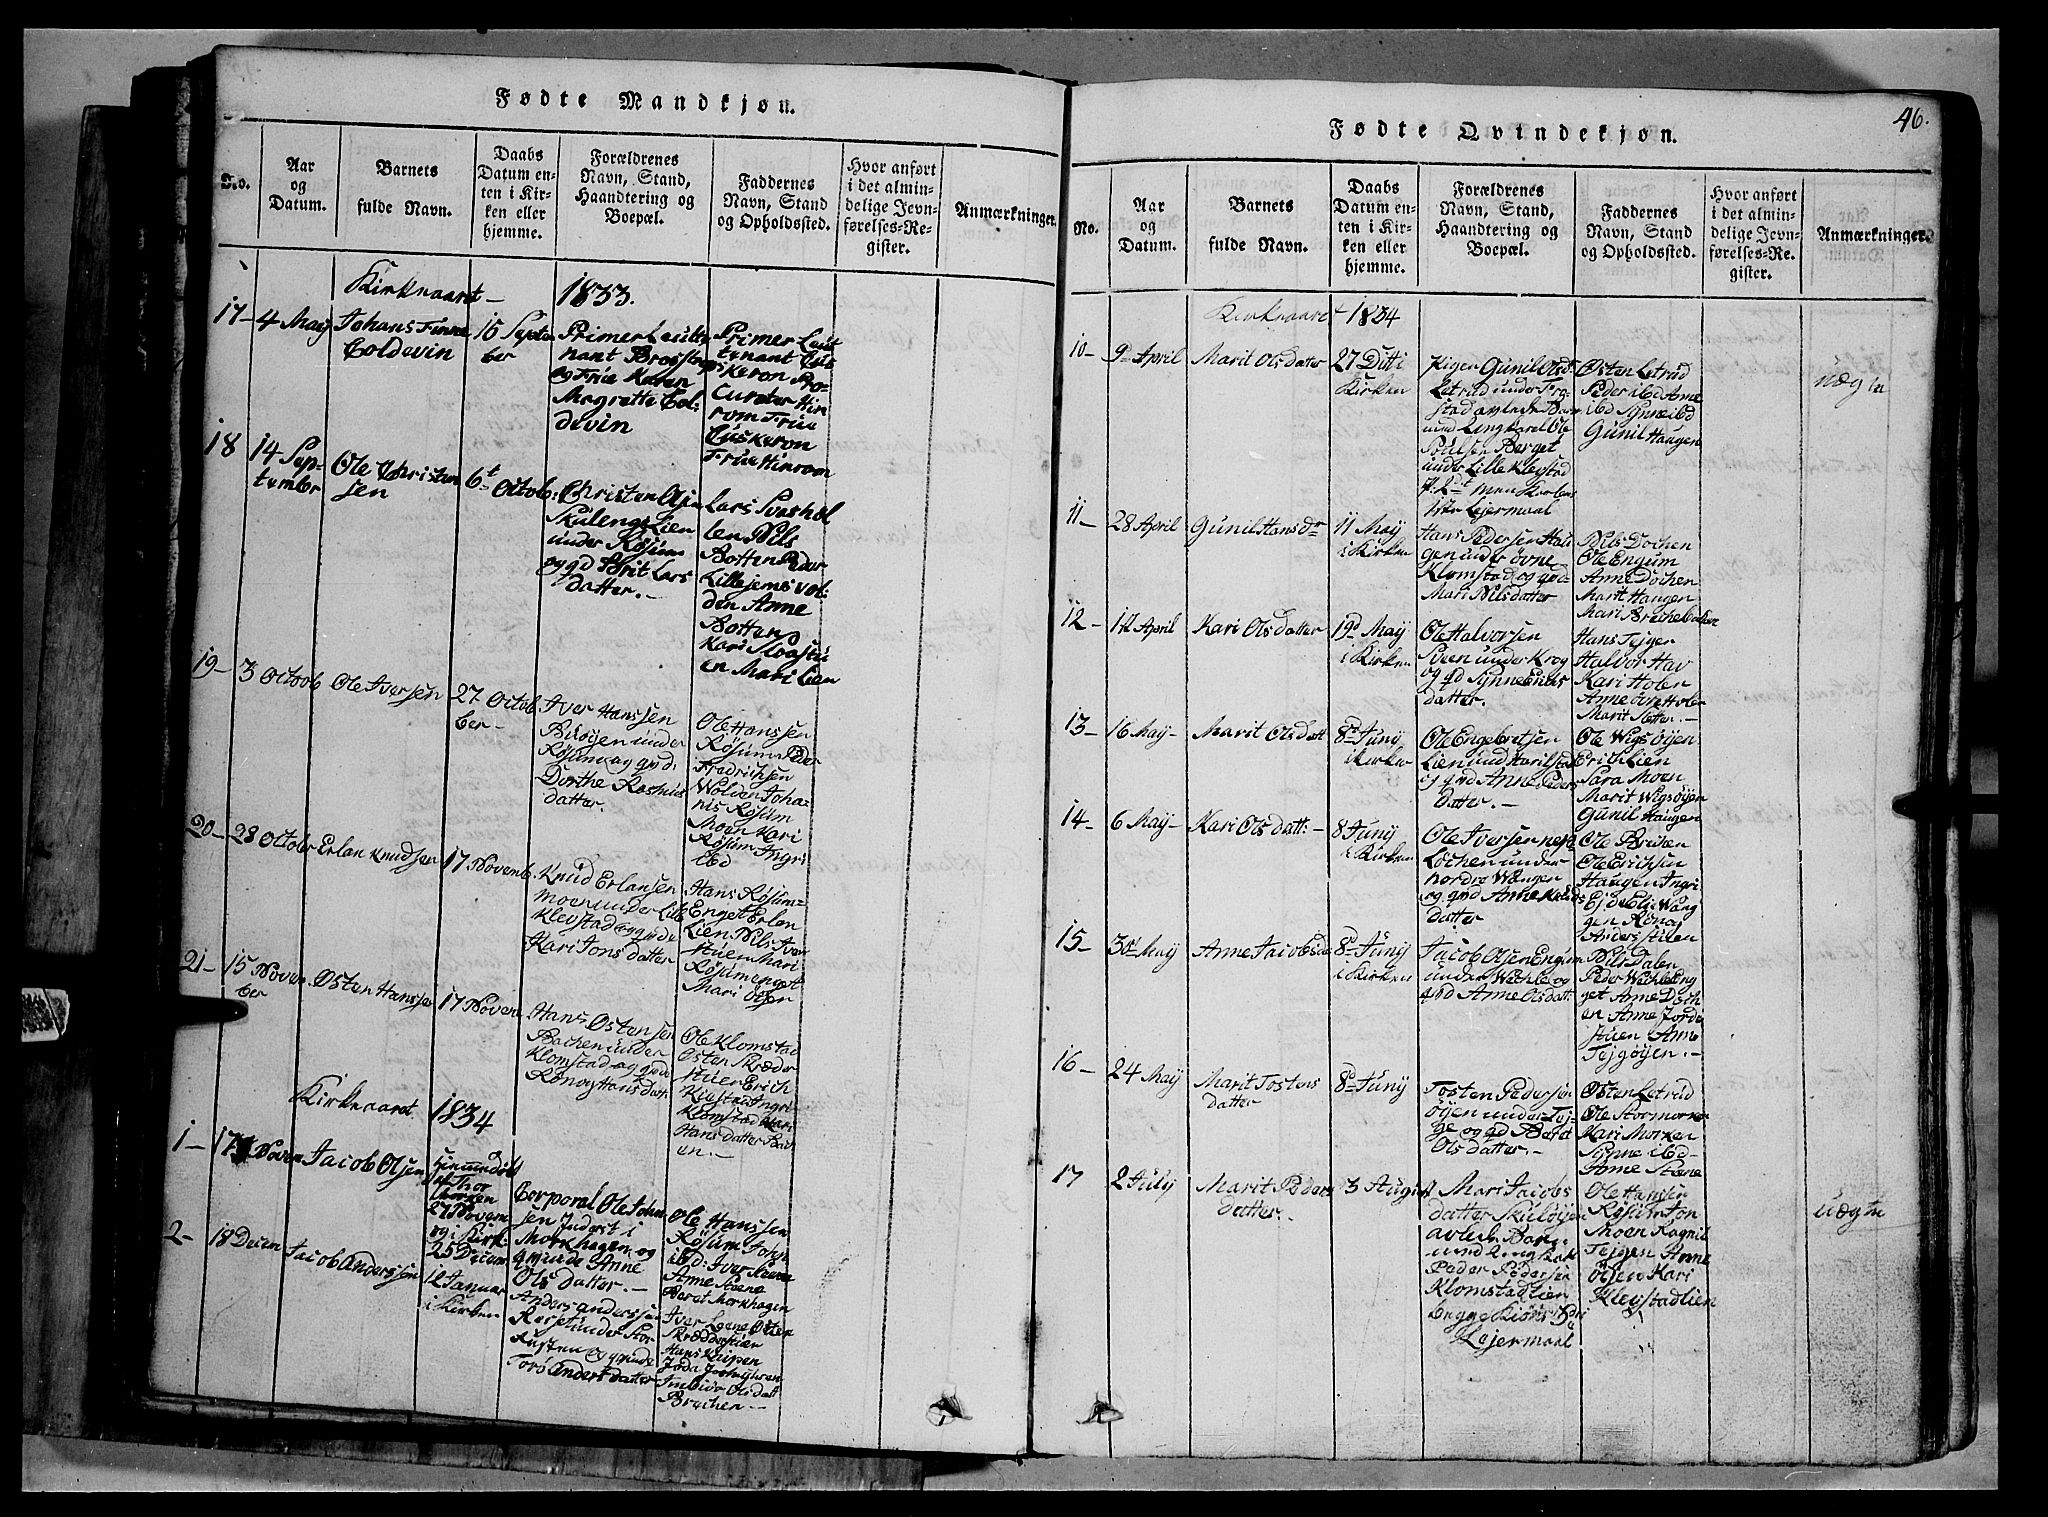 Fødte Mandkjøn.
No.
Aar
og
Datum.
Barnets
fulde Navn.
Daabs
Datum en-
ten i Kir-
ken eller
hjemme.
Forældrenes
Navn, Stand,
Haandtering og
Boepæl.
Faddernes
Navn, Stand
og Opholdssted.
Hvor anført
i det almin-
delige Jevn-
førelses-Re-
gister.
Anmærkninger.
Kirkeaaret 1833.
17 -
4 May
Johans Finne
Coldevin
15 Septem
ber
Primer Leutte
nant
og Frue Karen
Magrette Col-
devin
Primer Leut
tenant
keron Pro-
Curator Hin
rom Frue
Cuskeron
Frue Hinrom
18
14 Sep-
tember
Ole Christen
sen
6t Octob:
Christen Olsen
Lien
under Røsum
og gd Brit Lars
datter. -
Lars Svashol
ten Nils
Botten Peder
Lillejemsvol-
den Anne
Botten
Kari
en Mari Lien
19 -
3 Octob
Ole Iversen
27 Octob.
ber -
Iver Hanssen
under
Røsum og gd.
Dorthe Rasmus
datter.
Ole Hanssen
Røsum Peder
Fredrichsen
Wolden Joha-
nis Røsum
Moen Kari
Røsum Ingri
ibd
20 -
28 Octobr
Erlan Knudsen
17 Novemb.
Knud Erlansen
Moen under Lille
Klevstad og gde
Kari Jons datter
Hans Røsum-
Enget Erlan
Lien Nils Iver
stuen Mari
Røsumenget
Mari Olsen
21 -
15 Novem
ber
Østen Hanssen
17 Novem
Hans Ostensen
Bachen under
Klomstad og gde
Rønog Hans Datt.
Ole Klomstad
Osten Skræder
stuen Erich
Klevstad Ingri
Klomstad Kari
Hans datter Bach
en. -
Kirkeaaret 1834
1 -
17 Novem
Jacob Olsen
Hiemmedøbt
af Thor
Morken
27 Novem
og i Kirk:
25 Decem
Corporal Ole Johan
sen Inderst i
Morkhagen og
gmude Anne
Ols datter. -
Ole Hanssen
Røsum John
ibd: Iver Steene
Anne Steene
Beret Morkhagen
2 -
18 Decem
Jacob Anderssen
12 Januar
i Kirken
Anders anderssen
under Stor
og gmude
Torø Anders datter
Iver Osten
Skrædderstuen
Hans
Ols datt
Brechen -
46.
Fødte Qvindekjøn.
No.
Aar
og
Datum.
Barnets
fulde Navn.
Daabs
Datum en-
ten i Kir-
ken eller
hjemme.
Forældrenes
Navn, Stand,
Haandtering og
Boepæl.
Faddernes
Navn, Stand
og Opholdssted.
Hvor anført
i det almin-
delige Jevn-
førelses-Re-
gister.
Anmærkninger.
Kirkeaaret 1834
10 -
9 April
Marit Olsdatter
27 Ditti
Kirken
Pigen Gunil Olsd:
Letrud under Fro-
stad avlede Barn
med Ungkarel Ole
Poulsen Berget
under Lille Klevstad
Lejermaal
Osten Letrud
Peder ibd Anne
ibd Synne ibd
Gunil Haugen
uægte
11 -
28 April
Gunil Hans dr
11 May
i Kirken
Hans Pedersen Hau
gen under øvne
Klomstad og gde
Mari Nilsdatter
Nils Dochen
Ole Engum
Anne Dochen
Marit Haugen
Mari
12 -
April
Kari Olsdatter
19d May
i Kirken
Ole Halvorsen
Sveen under Krog
og gd Synne Enas
datter.
Hans Tejger
Halvor Hav
Kari Holen
Anne øvre Holen
Marit Sletten. -
13 -
16 May -
Marit Olsdatt
8d Juny
i Kirken
Ole Engebretsen
Lien und Harilstad
og gmd Anne Peders
datter. -
Ole Wigsøyen
Erich Lien
Sara Moen
Marit Wigsøyen
Gunil Haugen
14 -
6 May -
Kari Olsdatt: -
8 Juny
i Kirken
Ole Iversen
Lochen under
nordre Wangen
og gmd Anne Knuds
datter
Ole Brichen
Ole Erichsen
Haugen Ingri
Wang
gen Rønog
Andersstuen
15 -
30d May
Anne Jacobsda
8d Juny
i Kirken
Jacob Olsen Engum
under Wechle og
gmd Anne Olsdatt:
Nils Dalen
Peder Wechleeng
get Anne Doch
en Anne Jorde
stuen Anne
Tejgøyen. -
16 -
24 May
Marit Tostens
datter
8d Juny
Tosten Pedersen
Øyen under Tej-
ge og gd Beret
Olsdatter. -
Osten Letrud
Ole Stormorken
Kari Morken
Synne ibd -
Anne Steene
17
2 July
Marit Peders
datter. -
3 August
Mari Jacobs
datter Skuløyen
avlede Barn
und Ungkarl
Peder Pedersen
Klomstadlien
begge
Lejermaal
Ole Hanssen
Røsum Jon
Moen Ragnil
Tejgen Anne
Olsen Kari
Klevstadlien
uægte